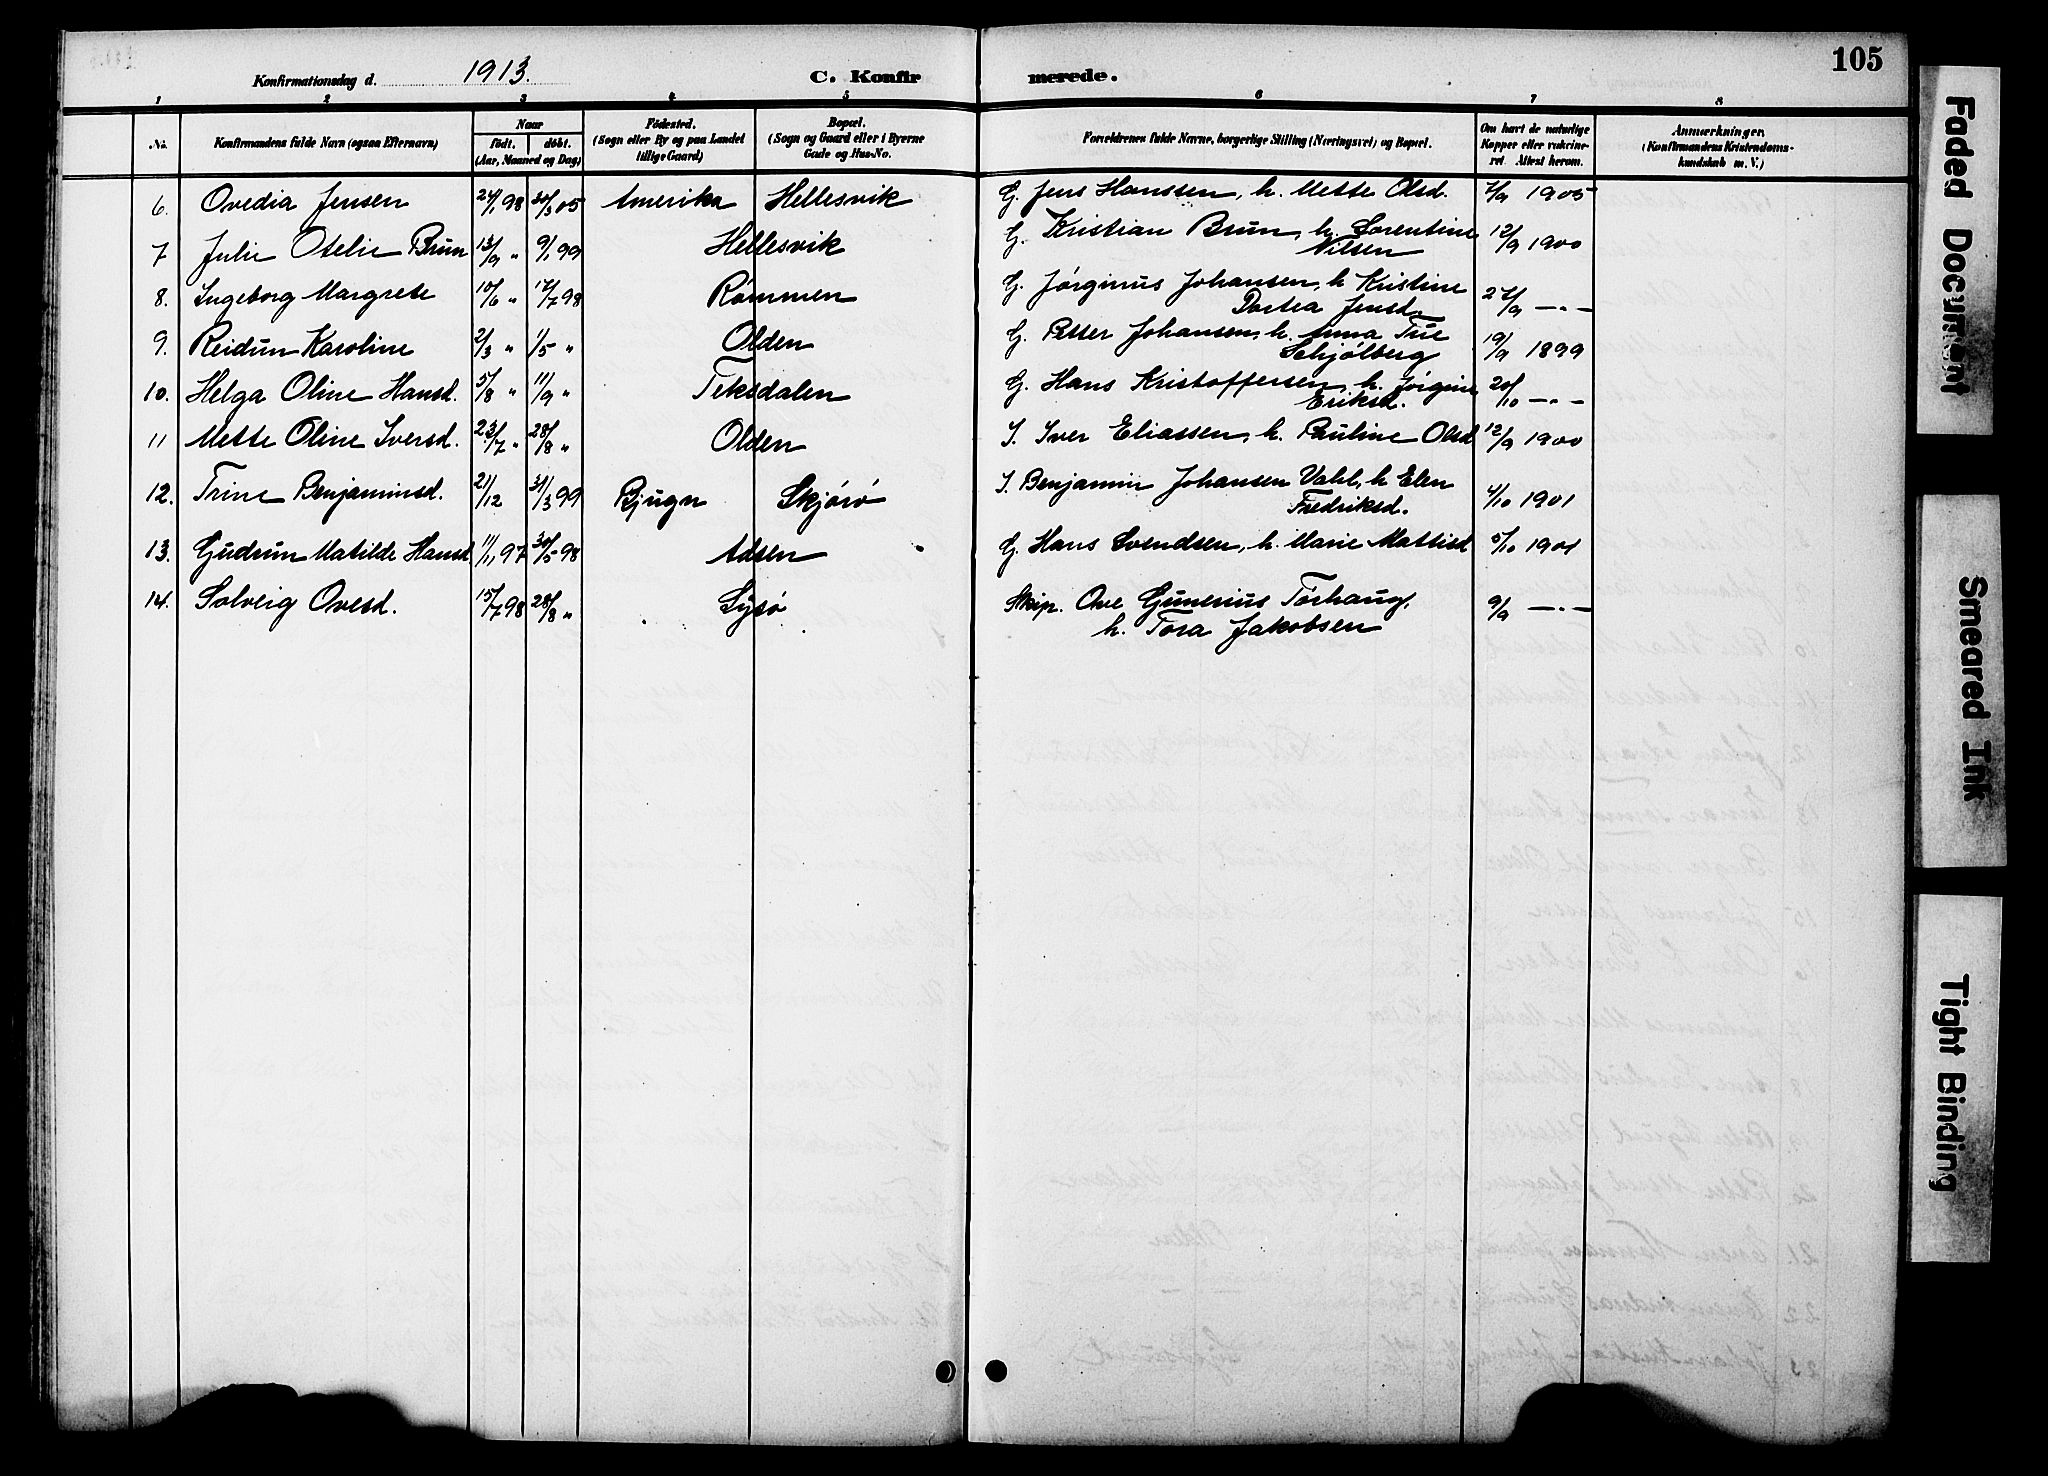 105
Konfirmationsdag d. 1913. C. Konfirmerede.
1 2 3 4 5 6 7 8
No. Konfirmandens fulde Navn (ogsaa Efternavn) Naar født. døbt. (Aar, Maaned og Dag) Fødested. (Sogn eller By og paa Landet tillige Gaard) Bopæl. (Sogn og Gaard eller i Byerne Gade og Hus-No. Forældrenes fulde Navne, borgerlige Stilling (Næringsvei) og Bopæl. Om havt de naturlige Kopper eller vakcineret. Attest herom. Anmærkninger. (Konfirmandens Kristendomskundskab m. V.)
6. Ovedia Jensen 24/1 98 30/3 05 Amerika Hellesvik G. Jens Hanssen, h. Mette Olsd. 1905
7 Julie Otelie Brun 13/9 " 9/1 99 Hellesvik G. Kristian Brun, h. Sorentine Nilsen 12/9 1900
8. Ingeborg Margrete 10/6 " 17/7 98 Rømmen G. Jørginus Johansen, h Kristine Dortea Jensd. 27/9 — " —
9. Reidun Karoline 2/3 " 1/5 " Olden G. Petter Johansen, h. Anna Schjølberg 19/9 1899
10. Helga Oline Hansd. 5/8 " 11/9 " Teksdalen G. Hans Kristoffersen, h. Jørgine Eriksd. 20/10 — " —
11 Mette Oline Iversd. 23/7 " 28/8 " Olden I. Iver Eliassen, h. Pauline Olsd 12/9 1900
12. Trine Benjaminsd. 21/12 31/3 99 Bjugn Skjørø I. Benjamin Johansen Vahl, h Elen Fredriksd. 4/10 1901
13. Gudrun Matilde Hansd 11/11 97 30/5 98 Adsen G. Hans Svendsen, h. Marie Mattisd 5/10 1901
14. Solveig Ovesd. 15/7 98 28/8 " Lysø Skip. Ove Gunerius Tørhaug, h. Tora Jakobsen 9/9 — " —
Faded Document
Smeared Ink
Tight Binding